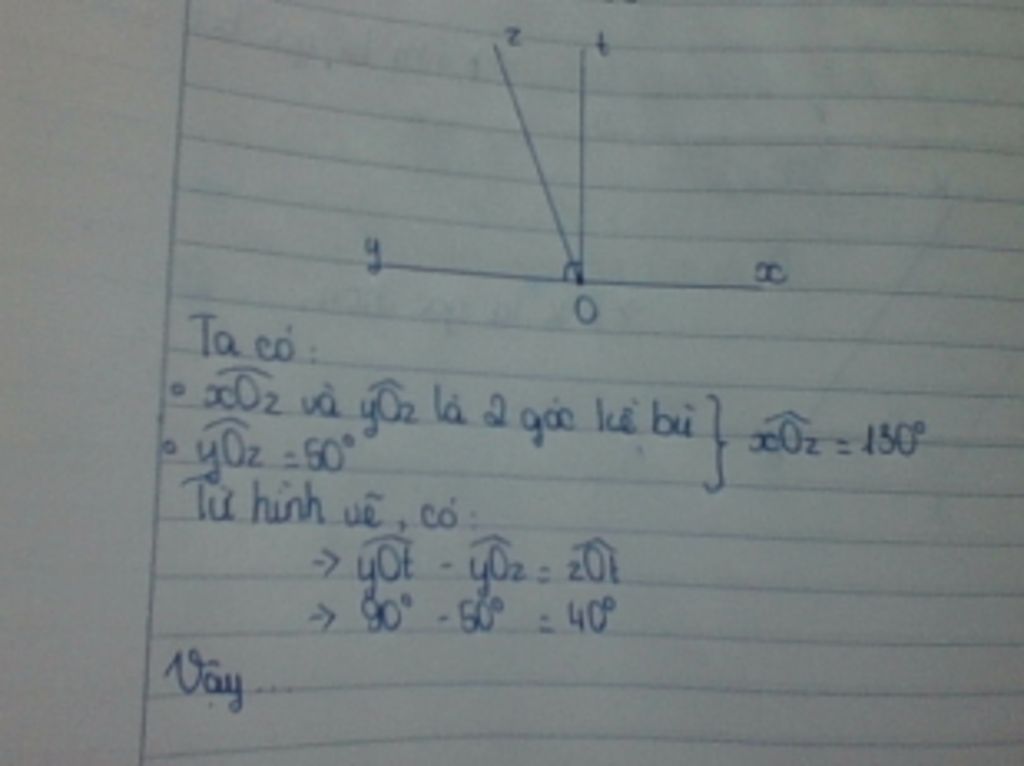 z t
y x
O
Ta có:
• xOz và yOz là 2 góc kề bù } xOz = 130°
• yOz = 50°
Từ hình vẽ, có:
→ yOt - yOz = zOt
→ 90° - 50° = 40°
Vậy...